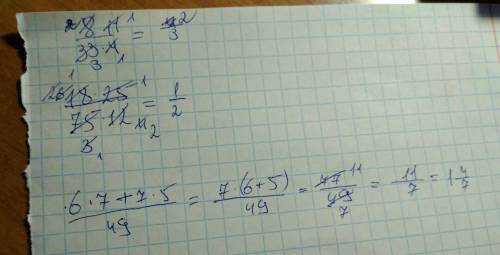 2 8·11 1 / 33·4 3 1 = 4 2 / 3
18·25 1 / 75·12 3 1 2 = 1/2
6·7+7·5 / 49 = 7·(6+5) / 49 = 77 11 / 49 7 = 11/7 = 1 4/7